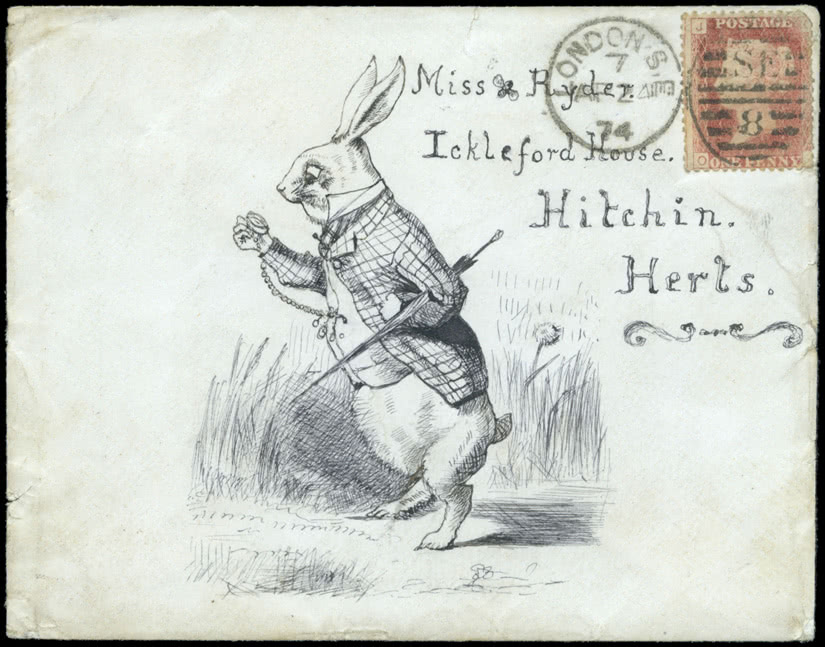 Miss Ryder.
Ickleford House.
Hitchin.
Herts.
LONDON·S.E
7
74
J
POSTAGE
SE
8
O ONE PENNY